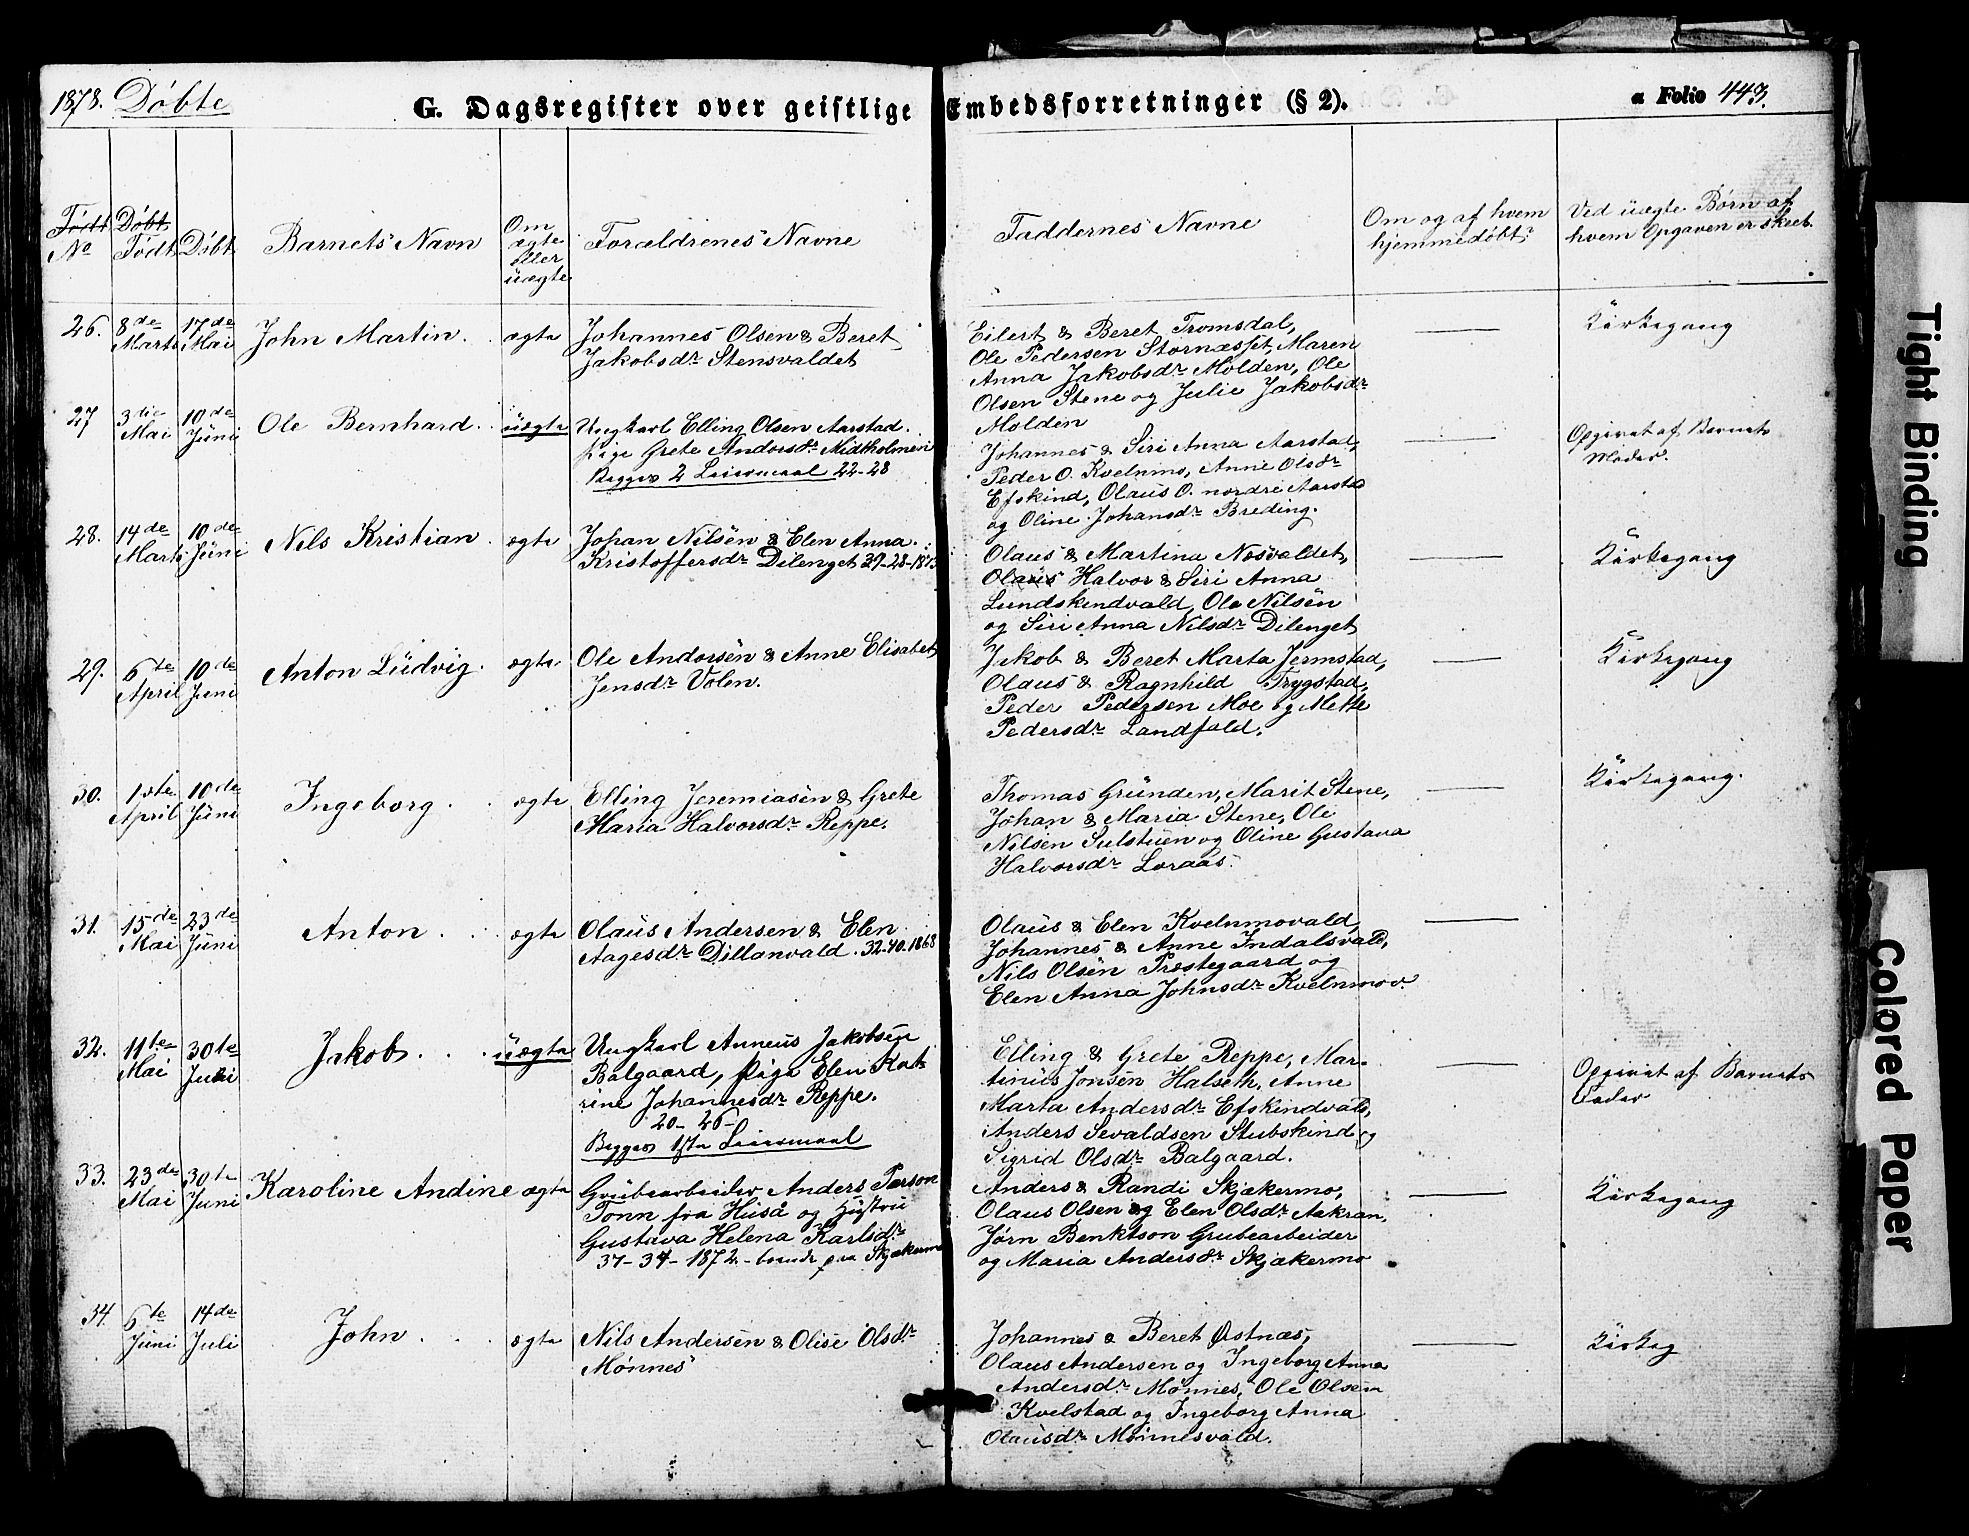 1878. Døbte
G. Dagsregister over geistlige Embedsforretninger (§ 2).
a Folio 443.
Født
No
Døbt
Født
Døbt
Barnets Navn
Om
ægte
eller
uægte
Forældrenes Navne
Faddernes Navne
Om og af hvem
hjemmedøbt?
Ved uægte Børn af
hvem Opgaven er skeet.
26.
8de
Marts
17de
Mai
John Martin.
ægte
Johannes Olsen & Beret
Jakobsdr Stensvaldet
Eilert & Beret Tromsdal,
Ole Pedersen Stornæsset, Maren
Anna Jakobsdr Molden, Ole
Olsen Stene og Julie Jakobsdr
Molden
Kirkegang
27
3die
Mai
10de
Juni
Ole Bernhard.
uægte
Ungkarl Elling Olsen Aarstad.
pige Grete Andersdr Midtholmen
Begges 2 Leiermaal 22-28
Johannes & Siri Anna Aarstad,
Peder O. Kvelmo, Anne Olsdr
Efskind, Olaus O. nordre Aarstad
og Oline Johansdr Breding.
Opgivet af Barnets
Moder.
28.
14de
Marts
10de
Juni
Nils Kristian.
ægte
Johan Nilsen & Elen Anna
Kristoffersdr Dilenget 37-28-1873
Olaus & Martina Næsvaldet,
Olaus Halvor & Siri Anna
Lundskindvald, Ole Nilsen
og Siri Anna Nilsdr Dilenget
Kirkegang
29.
6te
April
10de
Juni
Anton Ludvig.
ægte
Ole Andersen & Anne Elisabet
Jensdr Volen.
Jakob & Beret Marta Jermstad,
Olaus & Ragnhild Trygstad,
Peder Pedersen Moe og Mette
Pedersdr Landfald.
Kirkegang
30.
1ste
April
10de
Juni
Ingeborg.
ægte
Elling Jeremiasen & Grete
Maria Halvorsdr Reppe.
Thomas Grunden, Marit Stene,
Johan & Maria Stene, Ole
Nilsen Sulstuen og Oline Gustava
Halvorsdr Loraas.
Kirkegang.
31.
15de
Mai
23de
Juni
Anton.
ægte
Olaus Andersen & Elen
Aagesdr Dillanvald. 32-40. 1868
Olaus & Elen Kvelnmovald,
Johannes & Anne Indalsvald,
Nils Olsen Præstegaard og
Elen Anna Johnsdr Kvelnmov.
32.
11te
Mai
30te
Juni
Jakob.
uægte
Ungkarl Anneus Jakobsen
Balgaard, pige Elen Kat-
rine Johannesdr Reppe.
20-26-
Begges 1ste Leiermaal
Elling & Grete Reppe, Mar-
tinus Jonsen Halseth, Anne
Marta Andersdr Efskindvald,
Anders Sevaldsen Stubskind og
Sigrid Olsdr Balgaard.
Opgivet af Barnets
Fader
33.
23de
Mai
30te
Juni
Karoline Andine
ægte
Grubearbeider Anders Person
Tonn fra Huså og Hustru
Gustava Helena Karlsdr
37-34-1872 - boende paa Skjækermo
Anders & Randi Skjækermo,
Olaus Olsen og Elen Olsdr Aakran,
Jørn Benktson Grubearbeider
og Maria Andersdr Skjækermo
Kirkegang
34
6te
Juni
14de
Juli
John.
ægte
Nils Andersen & Olise Olsdr
Mønnes
Johannes & Beret Østnæs,
Olaus Andersen og Ingeborg Anna
Andersdr Mønnes, Ole Olsen
Kvelstad og Ingeborg Anna
Olausdr Mønnesvald.
Kirkeg
Tight Binding
Colored Paper